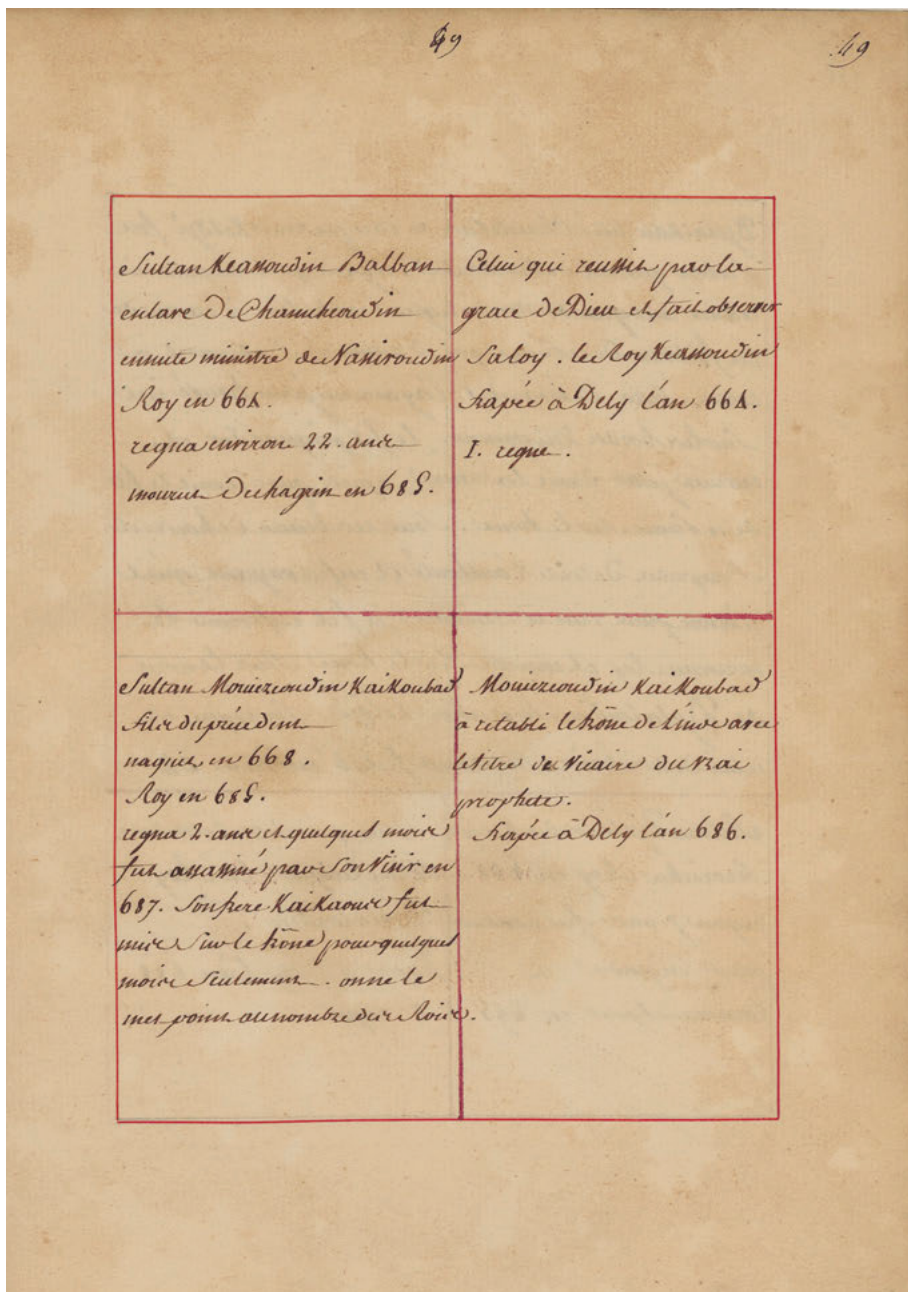 49
49
Sultan Keassoudin Balban
esclave de Chamcheoudin
ensuite ministre de Nassiroudin
Roy en 664.
regna environ 22. ans
mourut de chagrin en 685.
Celui qui reussit par la
grace de Dieu et fait observer
sa loy. le Roy Keassoudin
frapée à Dely l'an 664.
I. regne.
Sultan Mouiezeoudin KaiKoubad
fils du précedent
naquit en 668.
Roy en 685.
regna 2. ans et quelques mois
fut assassiné par son Visir en
687. Son frere KaiKaous fut
mis sur le trône pour quelques
mois seulement. on ne le
met point au nombre des Rois.
Mouiezeoudin KaiKoubad
à retabli le trône de l'inde avec
le titre de Vicaire du vrai
prophete.
frapée à Dely l'an 686.